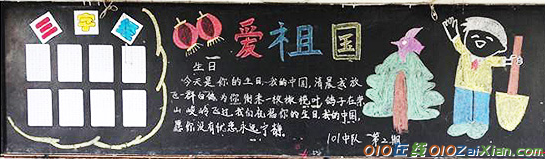 三字经
爱祖国
生日
今天是你的生日,我的中国,清晨我放
飞一群白鸽,为你衔来一枚橄榄叶,鸽子在崇
山峻岭飞过,我们祝福你的生日,我的中国,
愿你没有忧患永远宁静。
101中队 第2期
010在线010ZaiXian.com